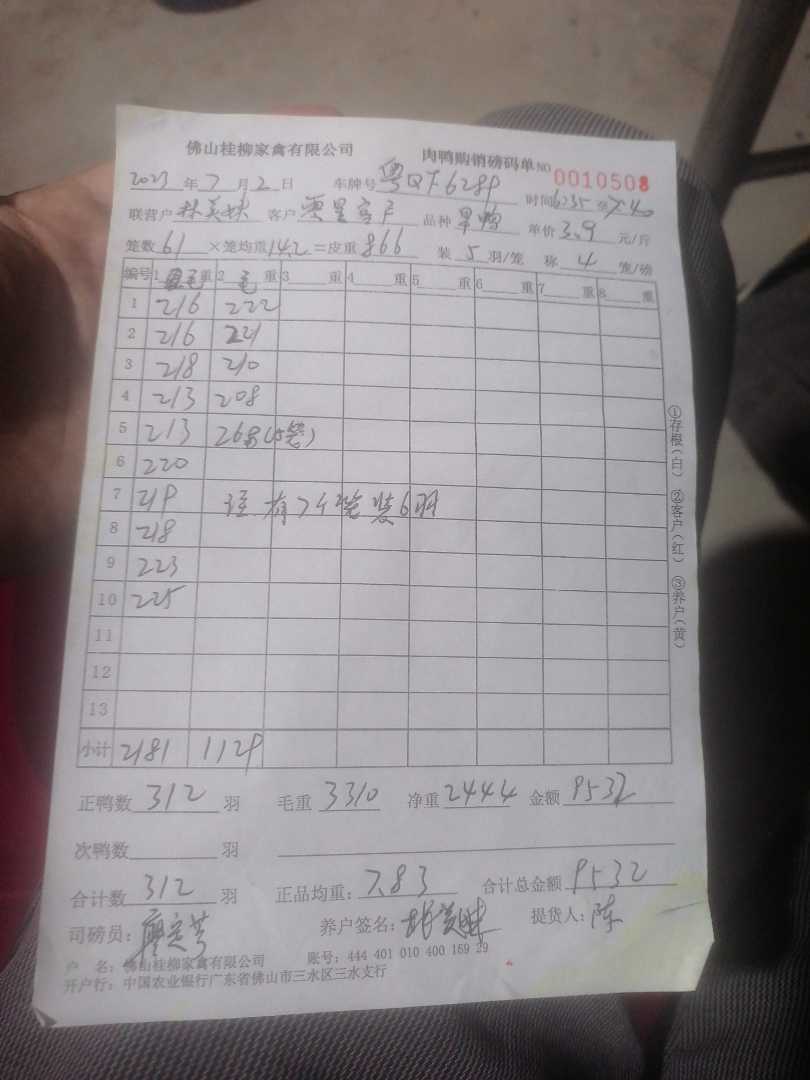 佛山桂柳家禽有限公司 肉鸭购销磅码单 NO 0010508
2023年7月2日 车牌号 粤QF628P 时间 6:35 至 7:40
联营户 客户 品种 旱鸭 单价 3.9 元/斤
笼数 61 ×笼均重 14.2 =皮重 866 装 5 羽/笼 称 4 笼/磅
编号 1 毛重 2 毛重 3 重 4 重 5 重 6 重 7 重 8 重
1 216 222
2 216 221
3 218 210
4 213 208
5 213 268(5笼)
6 220
7 219 注:有7个笼装6羽
8 218
9 223
10 225
11
12
13
小计 2181 1129
正鸭数 312 羽 毛重 3310 净重 2444 金额 9532
次鸭数 羽
合计数 312 羽 正品均重: 7.83 合计总金额 9532
司磅员: 养户签名: 提货人: 陈
户 名: 佛山桂柳家禽有限公司 账号: 444 401 010 400 169 29
开户行: 中国农业银行广东省佛山市三水区三水支行
①存根(白) ②客户(红) ③养户(黄)